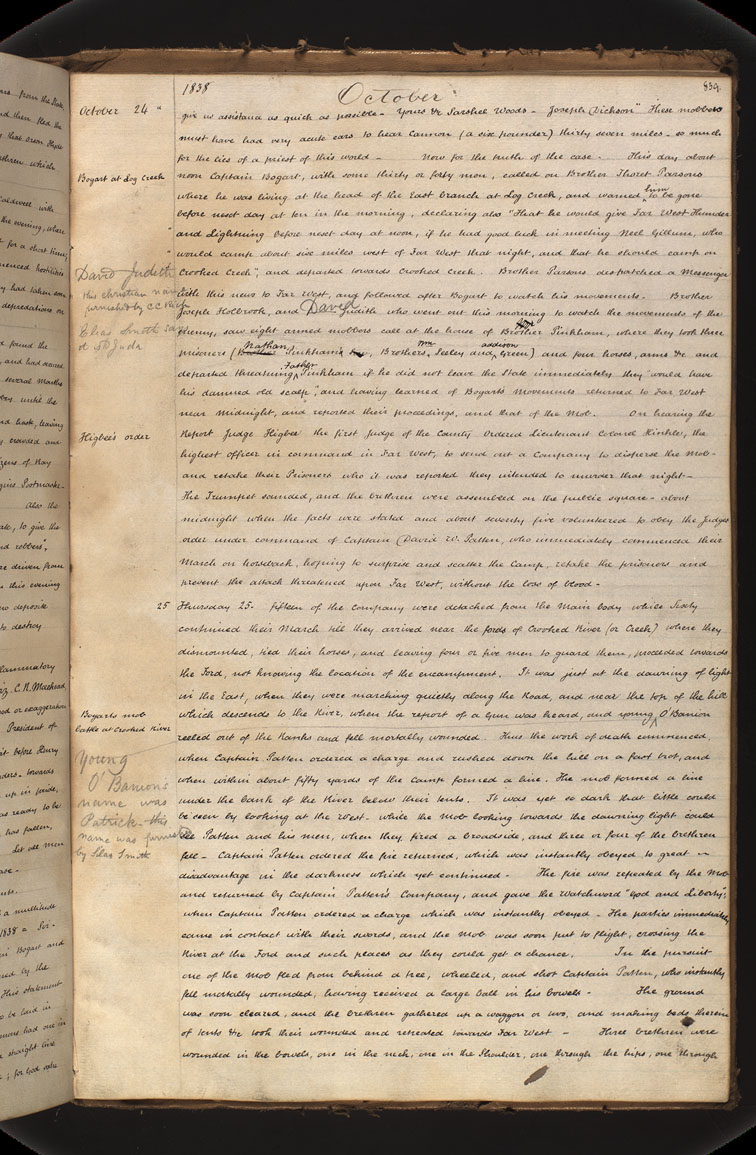 1838
October
839
October 24 "
give us assistance as quick as possible - Yours &c Sarshel Woods - Joseph Dickson" These mobbers
must have had very acute ears to hear Cannon (a six pounder) thirty seven miles - so much
for the lies of a priest of this world - Now for the truth of the case - This day about
Bogart at Log Creek
noon Captain Bogart, with some thirty or forty men, called on Brother Thoret Parsons
where he was living at the head of the East branch of Log Creek, and warned him to be gone
before next day at ten in the morning, declaring also "that he would give Far West Thunder
and Lightning before next day at noon, if he had good luck in meeting Neil Gillum, who
would camp about six miles west of Far West that night, and that he should camp on
Crooked Creek", and departed towards Crooked Creek. Brother Parsons dispatched a Messenger
David Judith
this christian name
furnished by C C Rich
with this news to Far West, and followed after Bogart to watch his movements. Brother
Joseph Holbrook, and David Judith who went out this morning to watch the movements of the
Elias Smith
enemy, saw eight armed mobbers call at the house of Brother Pinkham, where they took three
prisoners (Brother Nathan Pinkham, Brothers Wm Seeley and addison Green) and four horses, arms &c and
departed threatening Father Pinkham if he did not leave the State immediately they "would have
his damned old scalp", and having learned of Bogarts movements returned to Far West
near midnight, and reported their proceedings, and that of the Mob. On hearing the
Higbee's order
Report Judge Higbee the first judge of the County Ordered Lieutenant Colonel Hinkle, the
highest officer in command in Far West, to send out a Company to disperse the Mob-
and retake their Prisoners who it was reported they intended to murder that night-
The Trumpet sounded, and the brethren were assembled on the public square - about
midnight when the facts were stated and about seventy five volunteered to obey the Judges
order under command of Captain David W. Patten, who immediately commenced their
March on horseback, hoping to surprise and scatter the Camp, retake the prisoners and
prevent the attack threatened upon Far West, without the loss of blood -
25
Thursday 25 - fifteen of the company were detached from the Main body while Sixty
continued their March till they arrived near the ford of Crooked River (or Creek) where they
dismounted, tied their horses, and leaving four or five men to guard them, proceeded towards
the Ford, not knowing the location of the encampment. It was just at the dawning of light
in the East, when they were marching quietly along the Road, and near the top of the hill
Bogarts mob
battle at Crooked River
which descends to the River, when the report of a Gun was heard, and young O'Banion
reeled out of the Ranks and fell mortally wounded. Thus the work of death commenced,
Young
O'Banion's
name was
Patrick. this
name was furnished
by Elias Smith
when Captain Patten ordered a charge and rushed down the hill on a fast trot, and
when within about fifty yards of the Camp formed a line. The mob formed a line
under the bank of the River below their tents. It was yet so dark that little could
be seen by looking at the West - while the Mob looking towards the dawning light could
see Patten and his men, when they fired a broadside, and three or four of the brethren
fell - Captain Patten ordered the fire returned, which was instantly obeyed to great
disadvantage in the darkness which yet continued - The fire was repeated by the Mob
and returned by Captain Patten's Company, and gave the Watchword "God and Liberty";
when Captain Patten ordered a charge which was instantly obeyed - The parties immediately
came in contact with their swords, and the Mob was soon put to flight, crossing the
River at the Ford and such places as they could get a chance. In the pursuit
one of the Mob fled from behind a tree, wheeled, and shot Captain Patten, who instantly
fell mortally wounded, having received a large ball in his bowels - The ground
was soon cleared, and the brethren gathered up a waggon or two, and making beds therein
of tents &c took their wounded and retreated towards Far West - Three brethren were
wounded in the bowels, one in the neck, one in the Shoulder, one through the hips, one through